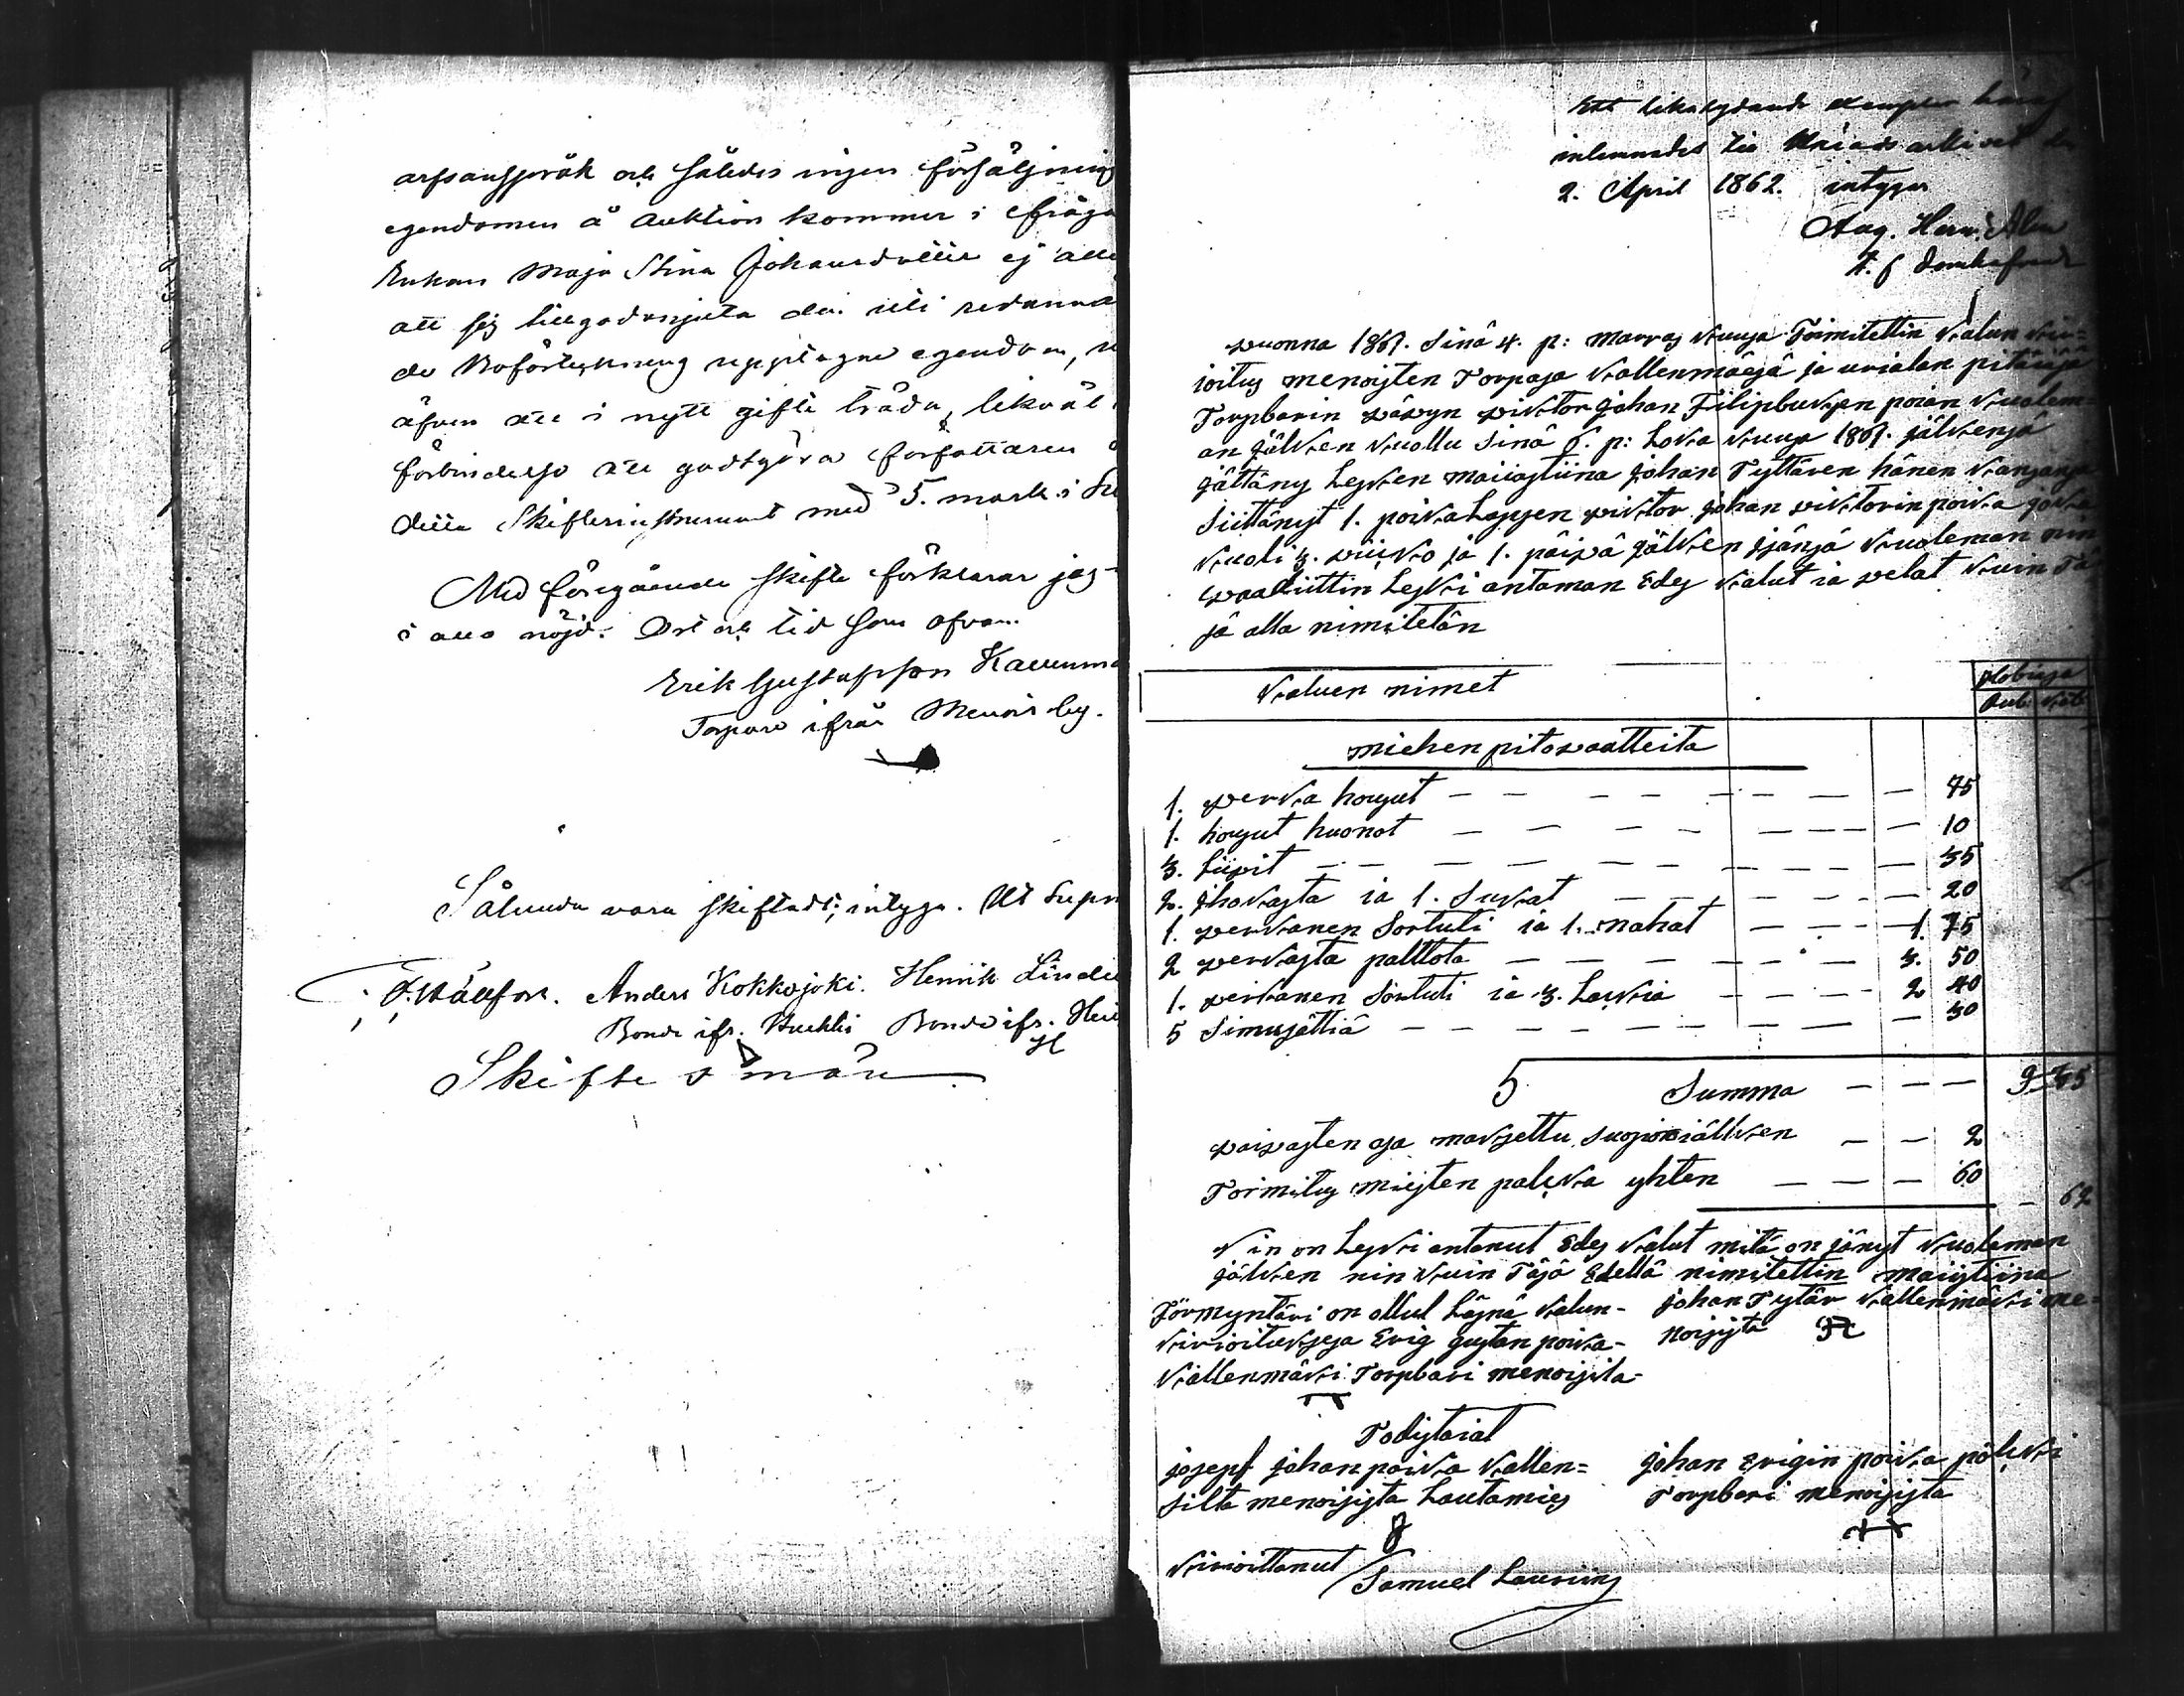 arfsanspråk och således ingen försäljning
egendomen å Auktion kommer i fråga
Enkan Maja Stina Johansdotter ej
att sig tillgodonjuta den uti
de Boförteckning upptagne egendom,
äfven att i nytt gifte träda, likväl
förbindelse att godtgöra författaren
detta Skiftesinstrument med 5. mark i
Med föregående skifte förklarar jag
i allo nöjd. Ort och tid som ofvan.
Erik Gustafsson
Torpare ifrån Menois by.
Sålunda vara skiftadt, intyga. Ut Supra
Anders Kokkojoki. Henrik
Bonde ifr. Bonde ifr.
Skiftesmän
Ett likalydande exemplar häraf
inlemnades till Härads arkivet
2. April 1862. intygar
Aug. Herm.
t. f
wuonna 1861. Sinä 4. p: marras kuuga Toimitettin kalun kir-
ioitus menoisten Torpasa kallenmäesä ja urialan pitäiäsä
Torpbarin wäwyn wiktor johan Filipbuksen poian kuolem-
an jälken kuollu Sinä 6. p: Loka kuuga 1861. jälkensä
jättäny Lesken maiiastiina johan Tyttären hänen kansansa
Siittänyt 1. poikaLapsen wiktor johan wiktorin poika joka
kuoli 3. wiikko ja 1. päiwä jälken isänsä kuoleman nin
waadittin Leski antaman Edes kalut ia welat kuin Tä
sä alla nimitetän
kaluen nimet
Rub: kob
miehen pitowaatteita
1. werka housut — — — 75
1. housut huonot — — — 10
3. Liiwit — — — 35
2. ihokasta ia 1. Sukat — — — 20
1. werkanen Sortuti ia 1. nahat — — — 1. 75
2 werkasta palttota — — — 3. 50
1. werkanen Sortuti ia 3. Lakkia — — — 2 40
5 Simusättiä — — — 30
Summa — — — 9 35
waiwasten osa maksettu suosion iälken — — 2
Toimitus miesten palkka yhten — — — 60
— 62
Nin on Leski antanut Edes kalut mitä on jänyt kuoleman
jälken nin kuin Täsä Edellä nimitettin maiistiina
Förmyntäri on ollut Läsnä kalun- johan Tytär kallenmäki me-
kirioituksesa Erig gustan poika- noisista
kallenmäki Torpbari menoisita-
Todistaiat
josepf johan poika kallen= johan Erigin poika
silta menoisista Lautamies Torpbari menoisista
kirioittanut Samuel Lauring